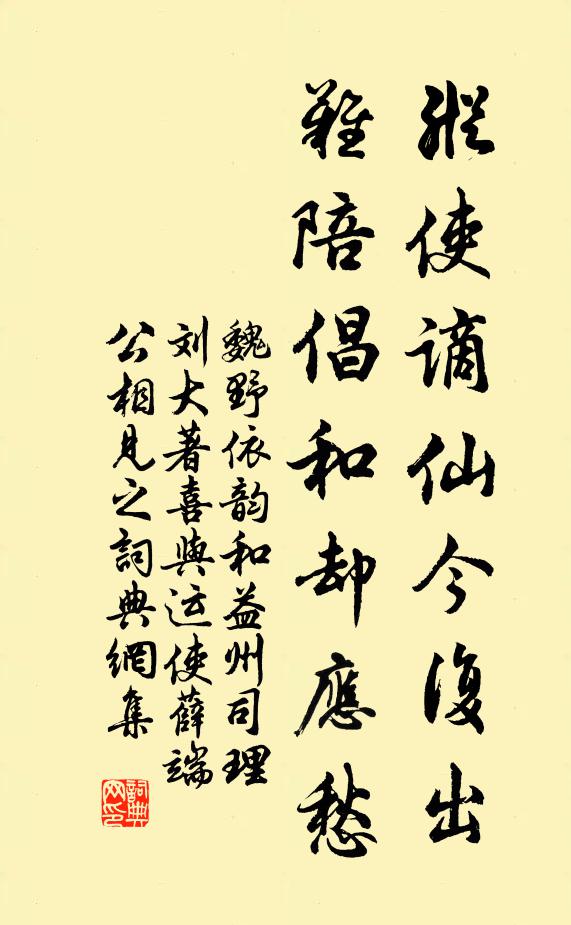 縱使謫仙今復出
難陪倡和却應愁
魏野依韵和益州司理
刘大著喜與运使薛端
公相見之詞典網集
詞典
网印